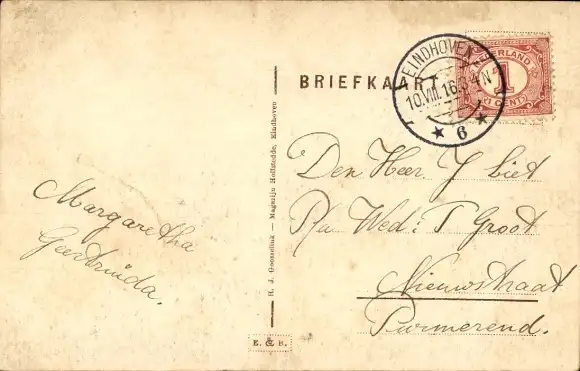 BRIEFKAART
EINDHOVEN
10.VIII.16.3-4N
★ 6 ★
NEDERLAND
1
CENT
Den Heer J Liet
P/a Wed: T Groot
Nieuwstraat
Purmerend.
Margaretha
Geertruida.
H. J. Goosselink — Magazijn Hofstedde, Eindhoven
E. & B.